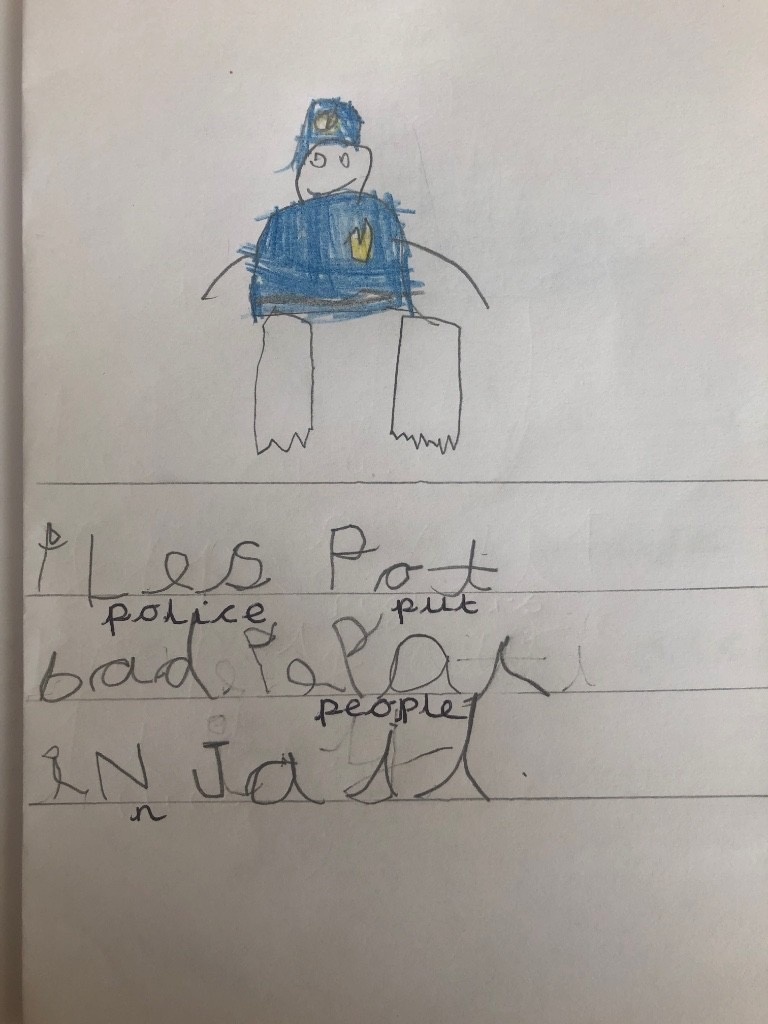 PLes Pot
police put
bad PePal
people
iN Jail.
n